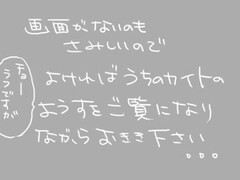 画面がないのも
さみしいので
よければうちのカイトの
ようすをご覧になり
ながら おきき下さい
。。。
チョー
うつですが